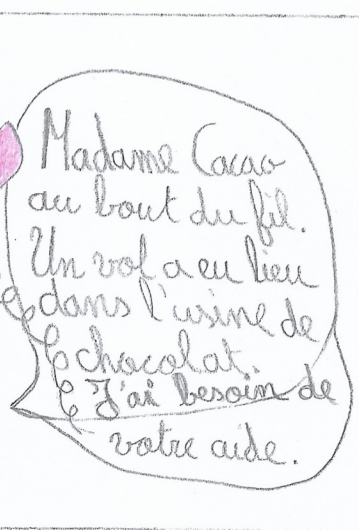 Madame Cacao
au bout du fil.
Un vol a eu lieu
dans l'usine de
chocolat.
J'ai besoin de
votre aide.